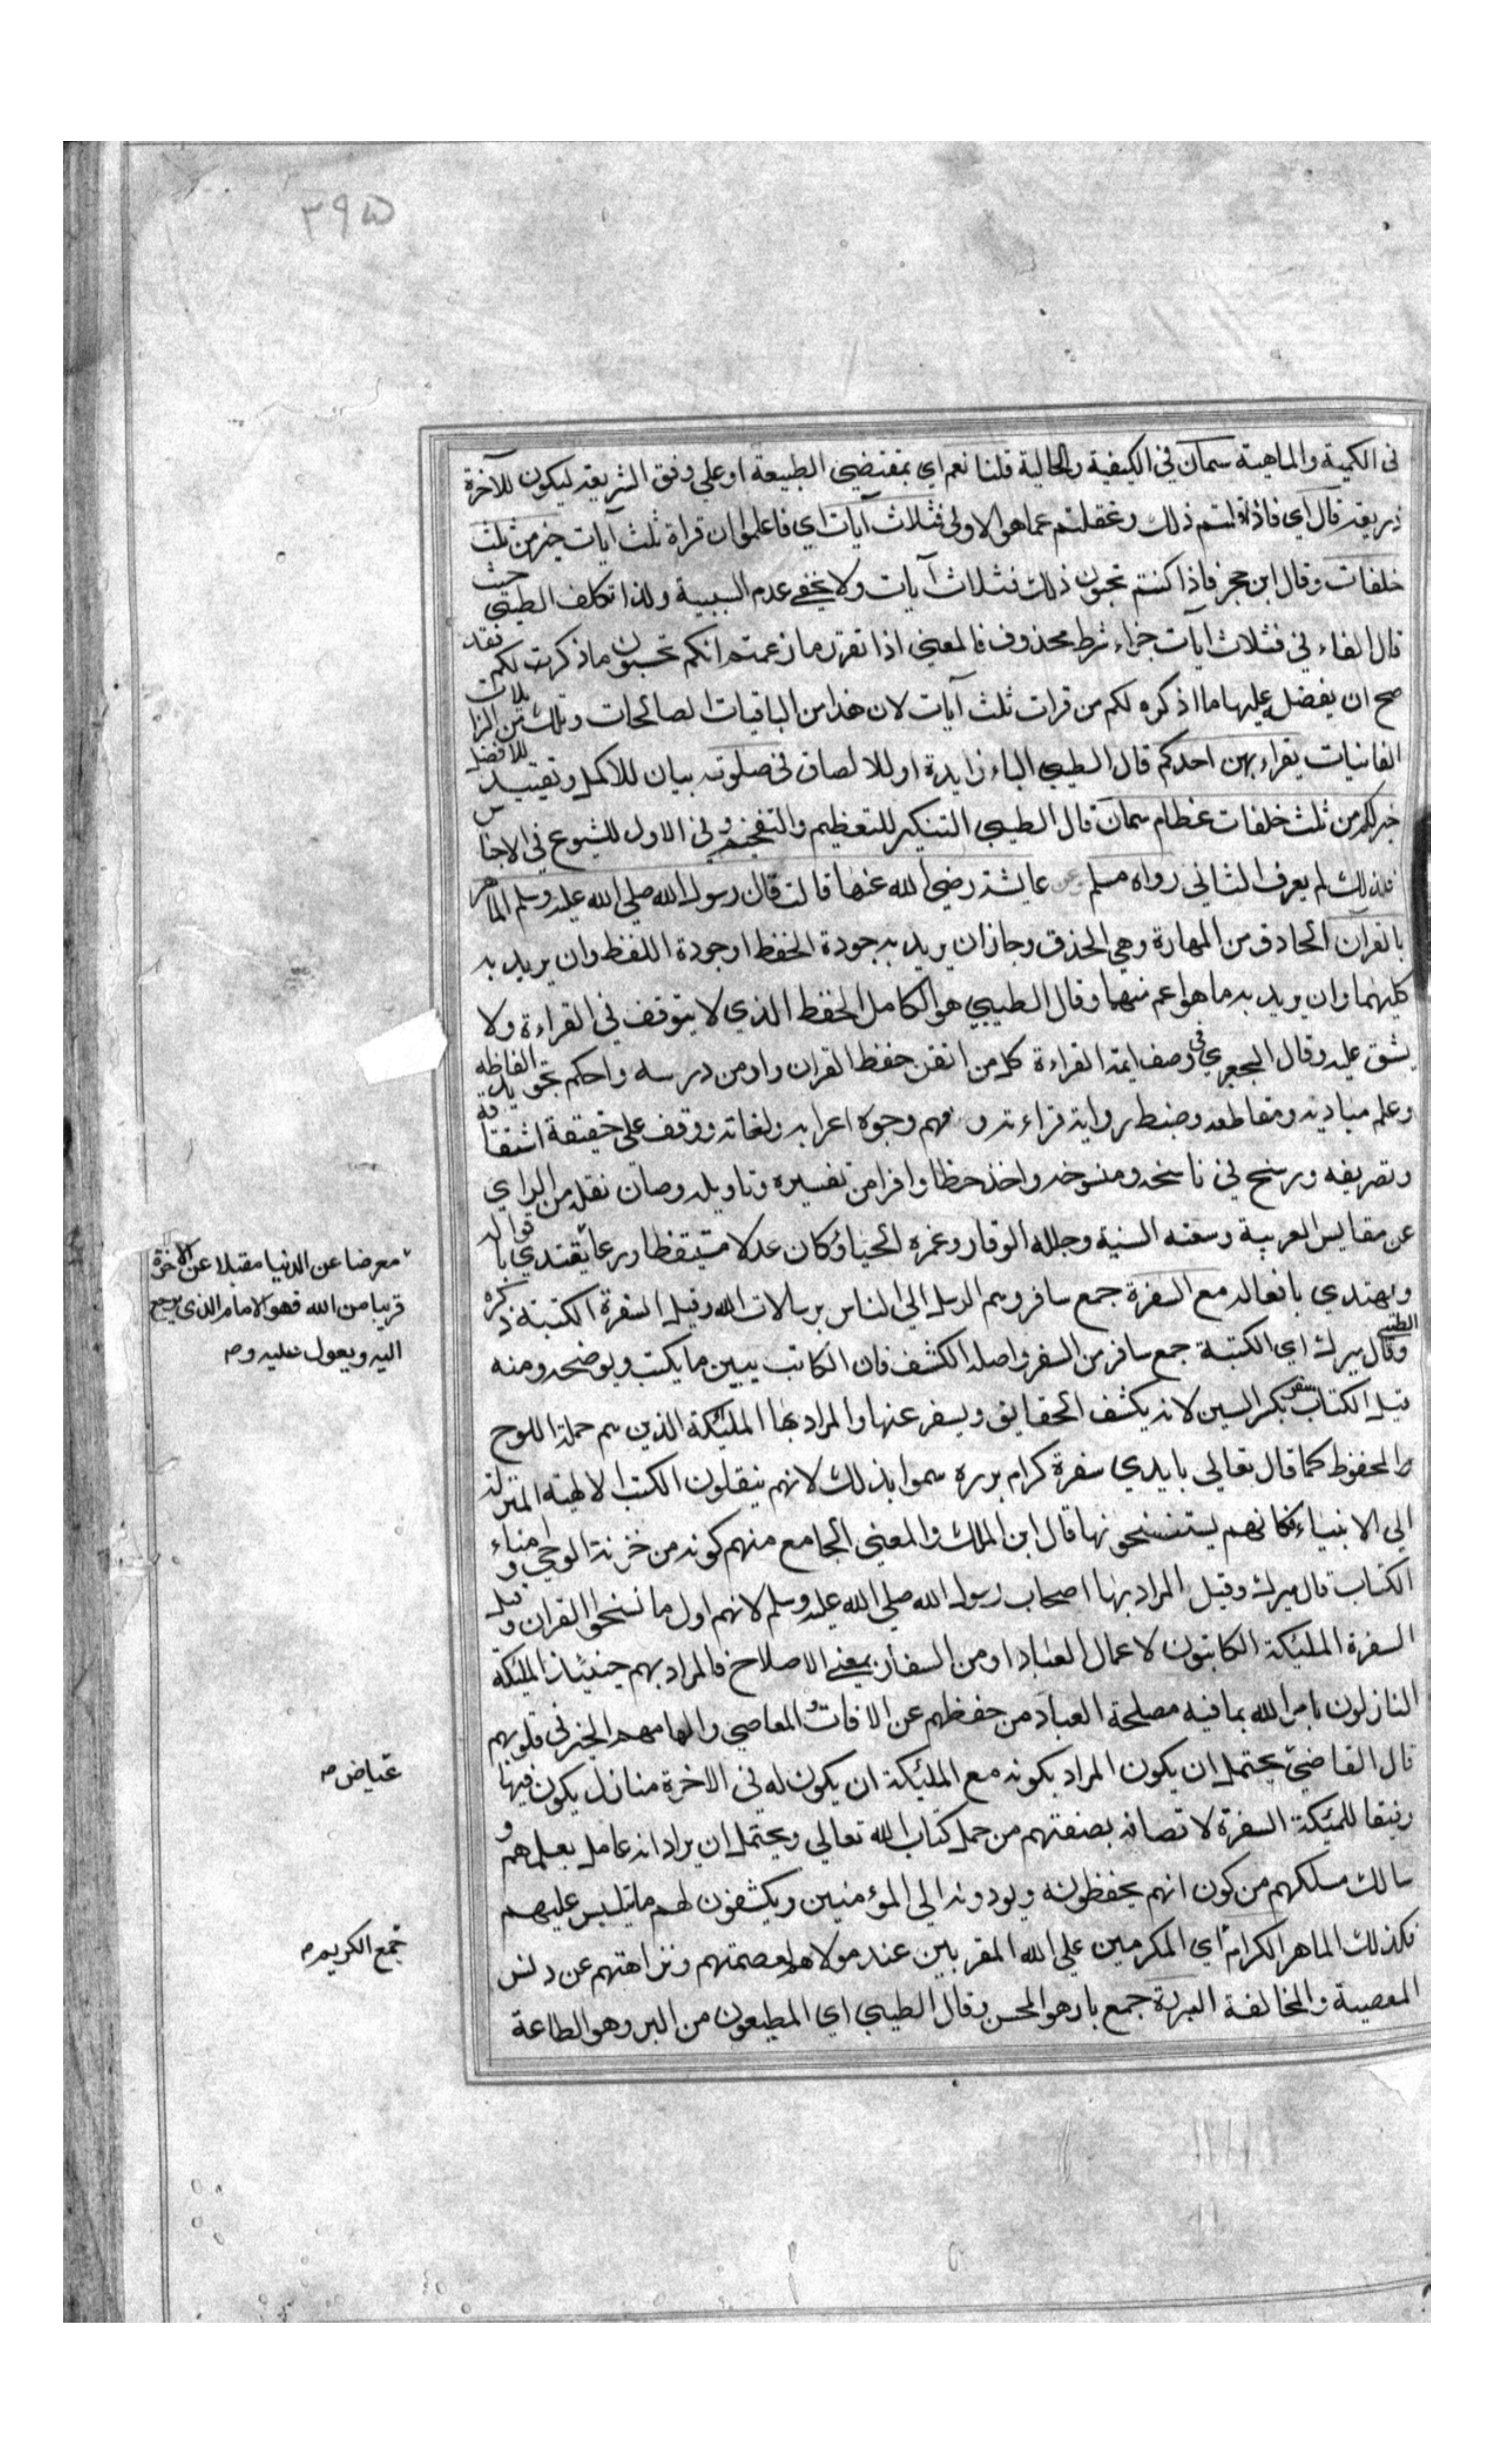 ٣٩٥
في الكمية والماهية سمان في الكيفية والحالية قلنا نعم اي بمقتضى الطبيعة او على وفق الشريعة ليكون للآخرة
ذريعة قال اي فاذا قلتم ذلك وغفلتم عما هو الاولى فثلاث آيات اي فاعلموا ان قراة ثلث آيات خير من ثلث
خلفات وقال ابن حجر فاذا كنتم تحبون ذلك فثلاث آيات ولا يخفى عدم السببية ولذا تكلف الطيبي حيث
قال الفاء في فثلاث آيات جزاء شرط محذوف فالمعنى اذا تقرر ما زعمتم انكم تحبون ما ذكرت لكم فقد
صح ان يفضل عليها ما اذكره لكم من قرات ثلث آيات لان هذا من الباقيات الصالحات وتلك من الزايلات
الفانيات يقراء بهن احدكم قال الطيبي الباء زايدة او للالصاق في صلوته بيان للاكمل وتقييد للافضل
خير لكم من ثلث خلفات عظام سمان قال الطيبي التنكير للتعظيم والتفخيم وفي الاول للشيوع في الاجناس
فلذلك لم يعرف الثاني رواه مسلم وعن عايشة رضي الله عنها قالت قال رسول الله صلى الله عليه وسلم الماهر
بالقرآن الحاذق من المهارة وهي الحذق وجاز ان يريد به جودة الحفظ او جودة اللفظ وان يريد به
كليهما وان يريد به ما هو اعم منهما وقال الطيبي هو الكامل الحفظ الذي لا يتوقف في القراءة ولا
يشق عليه وقال الجعبري في وصف ايمة القراءة كل من اتقن حفظ القران وادمن درسه واحكم تجويد الفاظه
وعلم مباديه ومقاطعه وضبط رواية قراءته وفهم وجوه اعرابه ولغاته ووقف على حقيقة اشتقاقه
وتصريفه ورسخ في ناسخه ومنسوخه واخذ حظا وافرا من تفسيره وتاويله وصان نقله من الراي
عن مقاييس العربية وسعته السنية وجلله الوقار وغمره الحياؤ كان عدلا متيقظا ورعا يقتدي باقواله
ويهتدي بافعاله مع السفرة جمع سافر وهم الرسل الي الناس برسالات الله وقيل السفرة الكتبة ذكره الطيبي
وقال ميرك اي الكتبة جمع سافر من السفر واصله الكشف فان الكاتب يبين ما يكتب ويوضحه ومنه
قيل الكتاب سفر بكسر السين لانه يكشف الحقايق ويسفر عنها والمراد بها المليكة الذين هم حملة اللوح
المحفوظ كما قال تعالي بايدي سفرة كرام برره سموا بذلك لانهم ينقلون الكتب الالهية المنزلة
الي الانبياء فكانهم يستنسخونها قال ابن الملك والمعنى الجامع منهم كونه من خزنة الوحي وامناء
الكتاب قال ميرك وقيل المراد بها اصحاب رسول الله صلى الله عليه وسلم لانهم اول ما نسخوا القران وقيل
السفرة المليكة الكاتبون لاعمال العباد او من السفارة بمعنى الاصلاح فالمراد بهم حينيذ المليكة
النازلون بامر الله بما فيه مصلحة العباد من حفظهم عن الافات والمعاصي والهامهم الخير في قلوبهم
قال القاضي يحتمل ان يكون المراد بكونه مع المليكة ان يكون له في الاخرة منازل يكون فيها
رفيقا للميكة السفرة لاتصافه بصفتهم من حمل كتاب الله تعالي ويحتمل ان يراد انه عامل بعملهم و
سالك مسلكهم من كون انهم يحفظونه ويودونه الي المؤمنين ويكشفون لهم ما يتلبس عليهم
فكذلك الماهر الكرام اي المكرمين علي الله المقربين عند مولاهم لعصمتهم ونزاهتهم عن دنس
المعصية والمخالفة البررة جمع بار هو المحسن وقال الطيبي اي المطيعون من البر وهو الطاعة
معرضا عن الدنيا مقبلا عن الاخرة
قريبا من الله فهو الامام الذي يرجع
اليه ويعول عليه صح
عياض صح
جمع الكريم صح